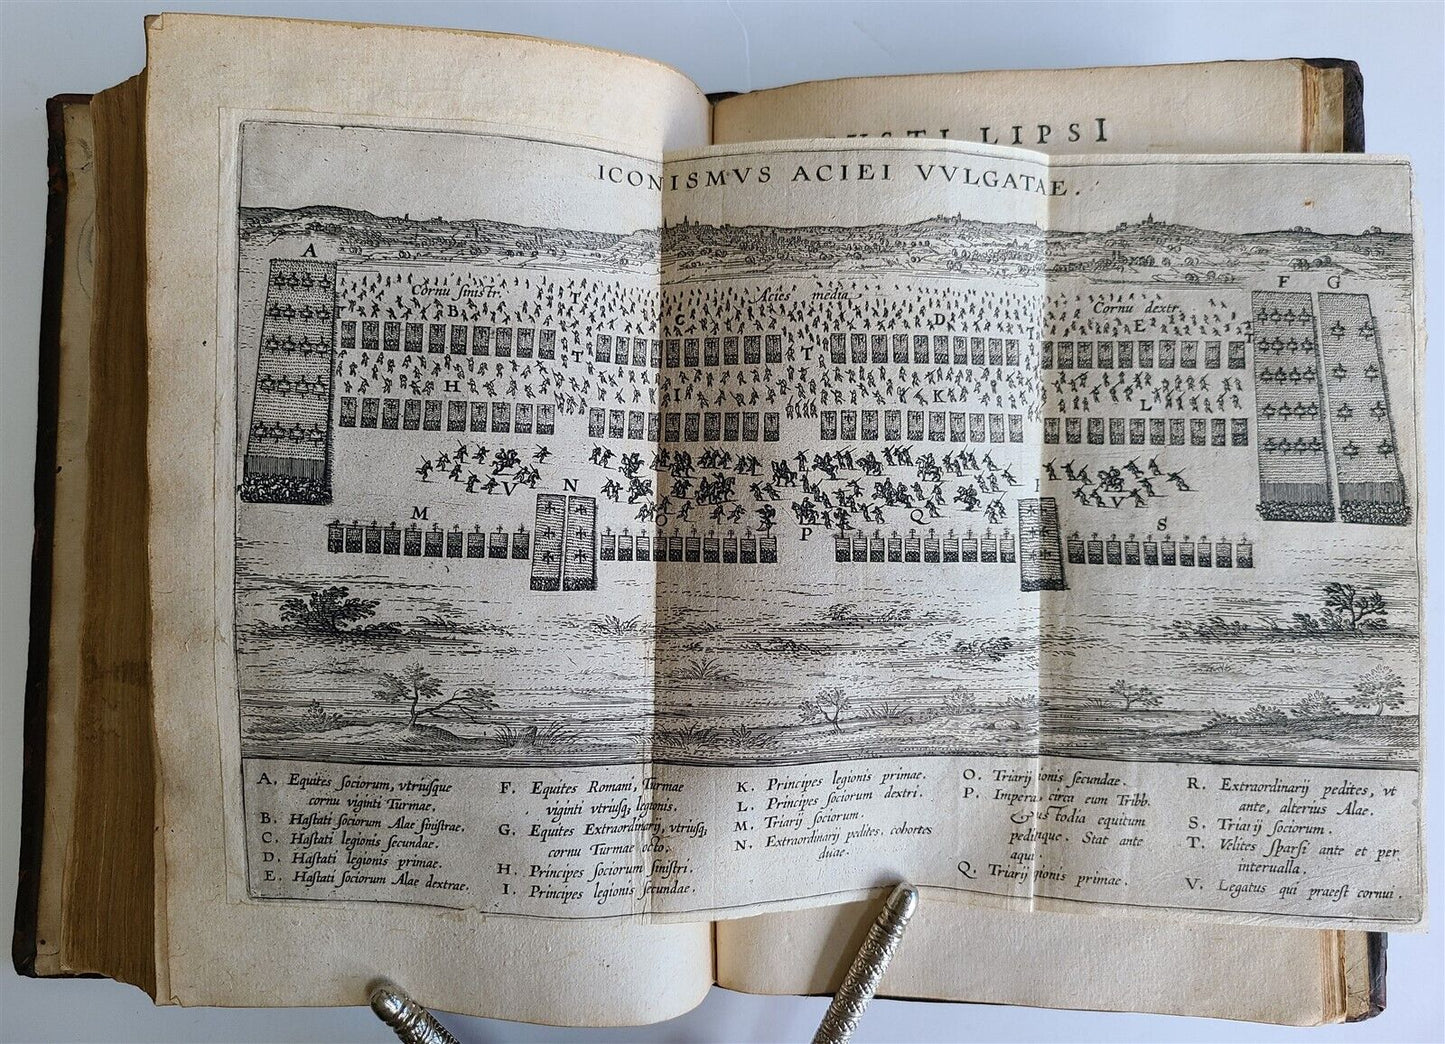 LIPSI
ICONISMVS ACIEI VVLGATAE.
A
F G
Cornu sinistr. T Acies media Cornu dextr.
B C D E
T T
H I K L
V N Q V
M O P S
A. Equites sociorum, vtriusque
cornu viginti Turmae.
B. Hastati sociorum Alae sinistrae.
C. Hastati legionis secundae.
D. Hastati legionis primae.
E. Hastati sociorum Alae dextrae.
F. Equites Romani, Turmae
viginti vtriusq, legionis.
G. Equites Extraordinarij, vtriusq;
cornu Turmae octo.
H. Principes sociorum sinistri.
I. Principes legionis secundae.
K. Principes legionis primae.
L. Principes sociorum dextri.
M. Triarij sociorum.
N. Extraordinarij pedites, cohortes
duae.
O. Triarij ionis secundae.
P. Impera, circa eum Tribb.
todia equitum
pedinque. Stat ante
aqui
Q. Triarij ionis primae.
R. Extraordinarij pedites, vt
ante, alterius Alae.
S. Triarij sociorum.
T. Velites sparsi ante et per
interualla.
V. Legatus qui praeest cornui.